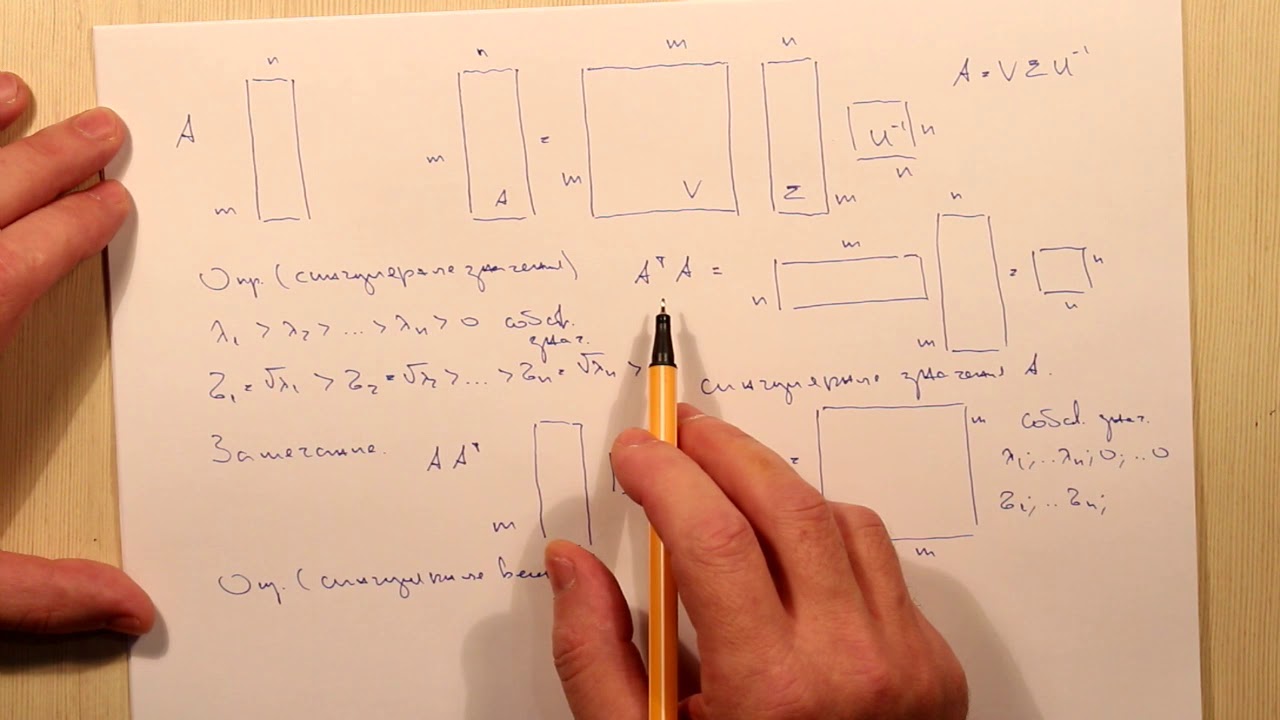 n n m n A = V Σ U⁻¹
A m = m U⁻¹ n
m A V Σ m n
Опр. (сингулярные значения) Aᵀ A = n m n m = n n
λ₁ > λ₂ > ... > λₙ > 0 собств. знач.
σ₁ = √λ₁ > σ₂ = √λ₂ > ... > σₙ = √λₙ > сингулярные значения A.
Замечание. A Aᵀ m = m m собств. знач.
λ₁; ... λₙ; 0; ... 0
σ₁; ... σₙ;
Опр. (сингулярные